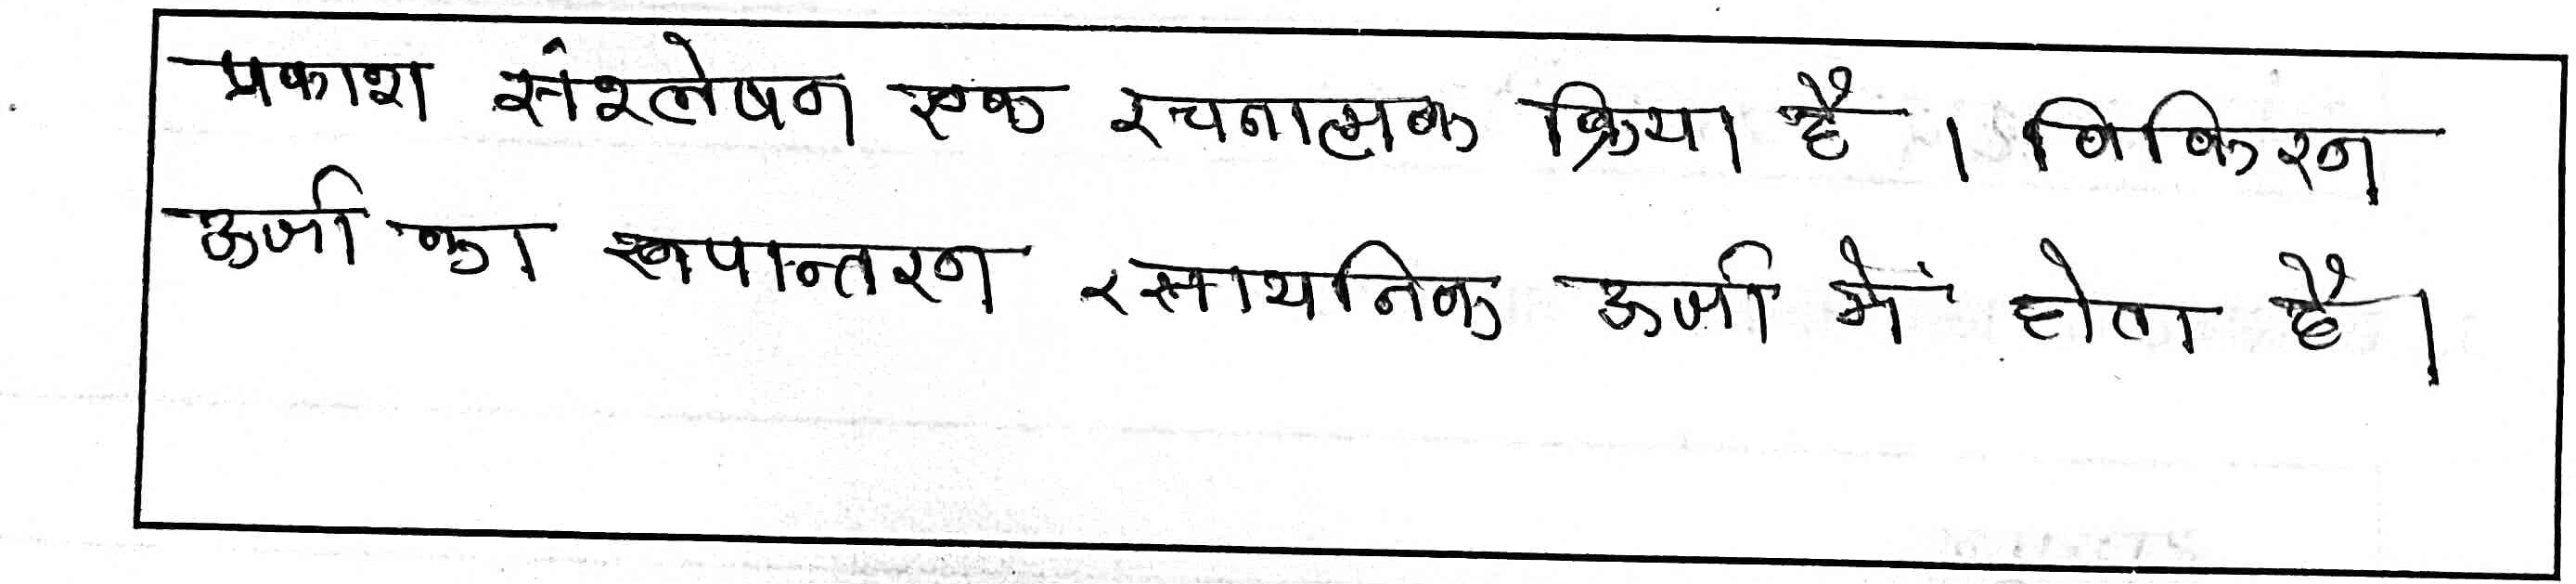 प्रकाश संश्लेषण एक रचनात्मक क्रिया है । विकिरण
ऊर्जा का रूपान्तरण रसायनिक ऊर्जा में होता है।